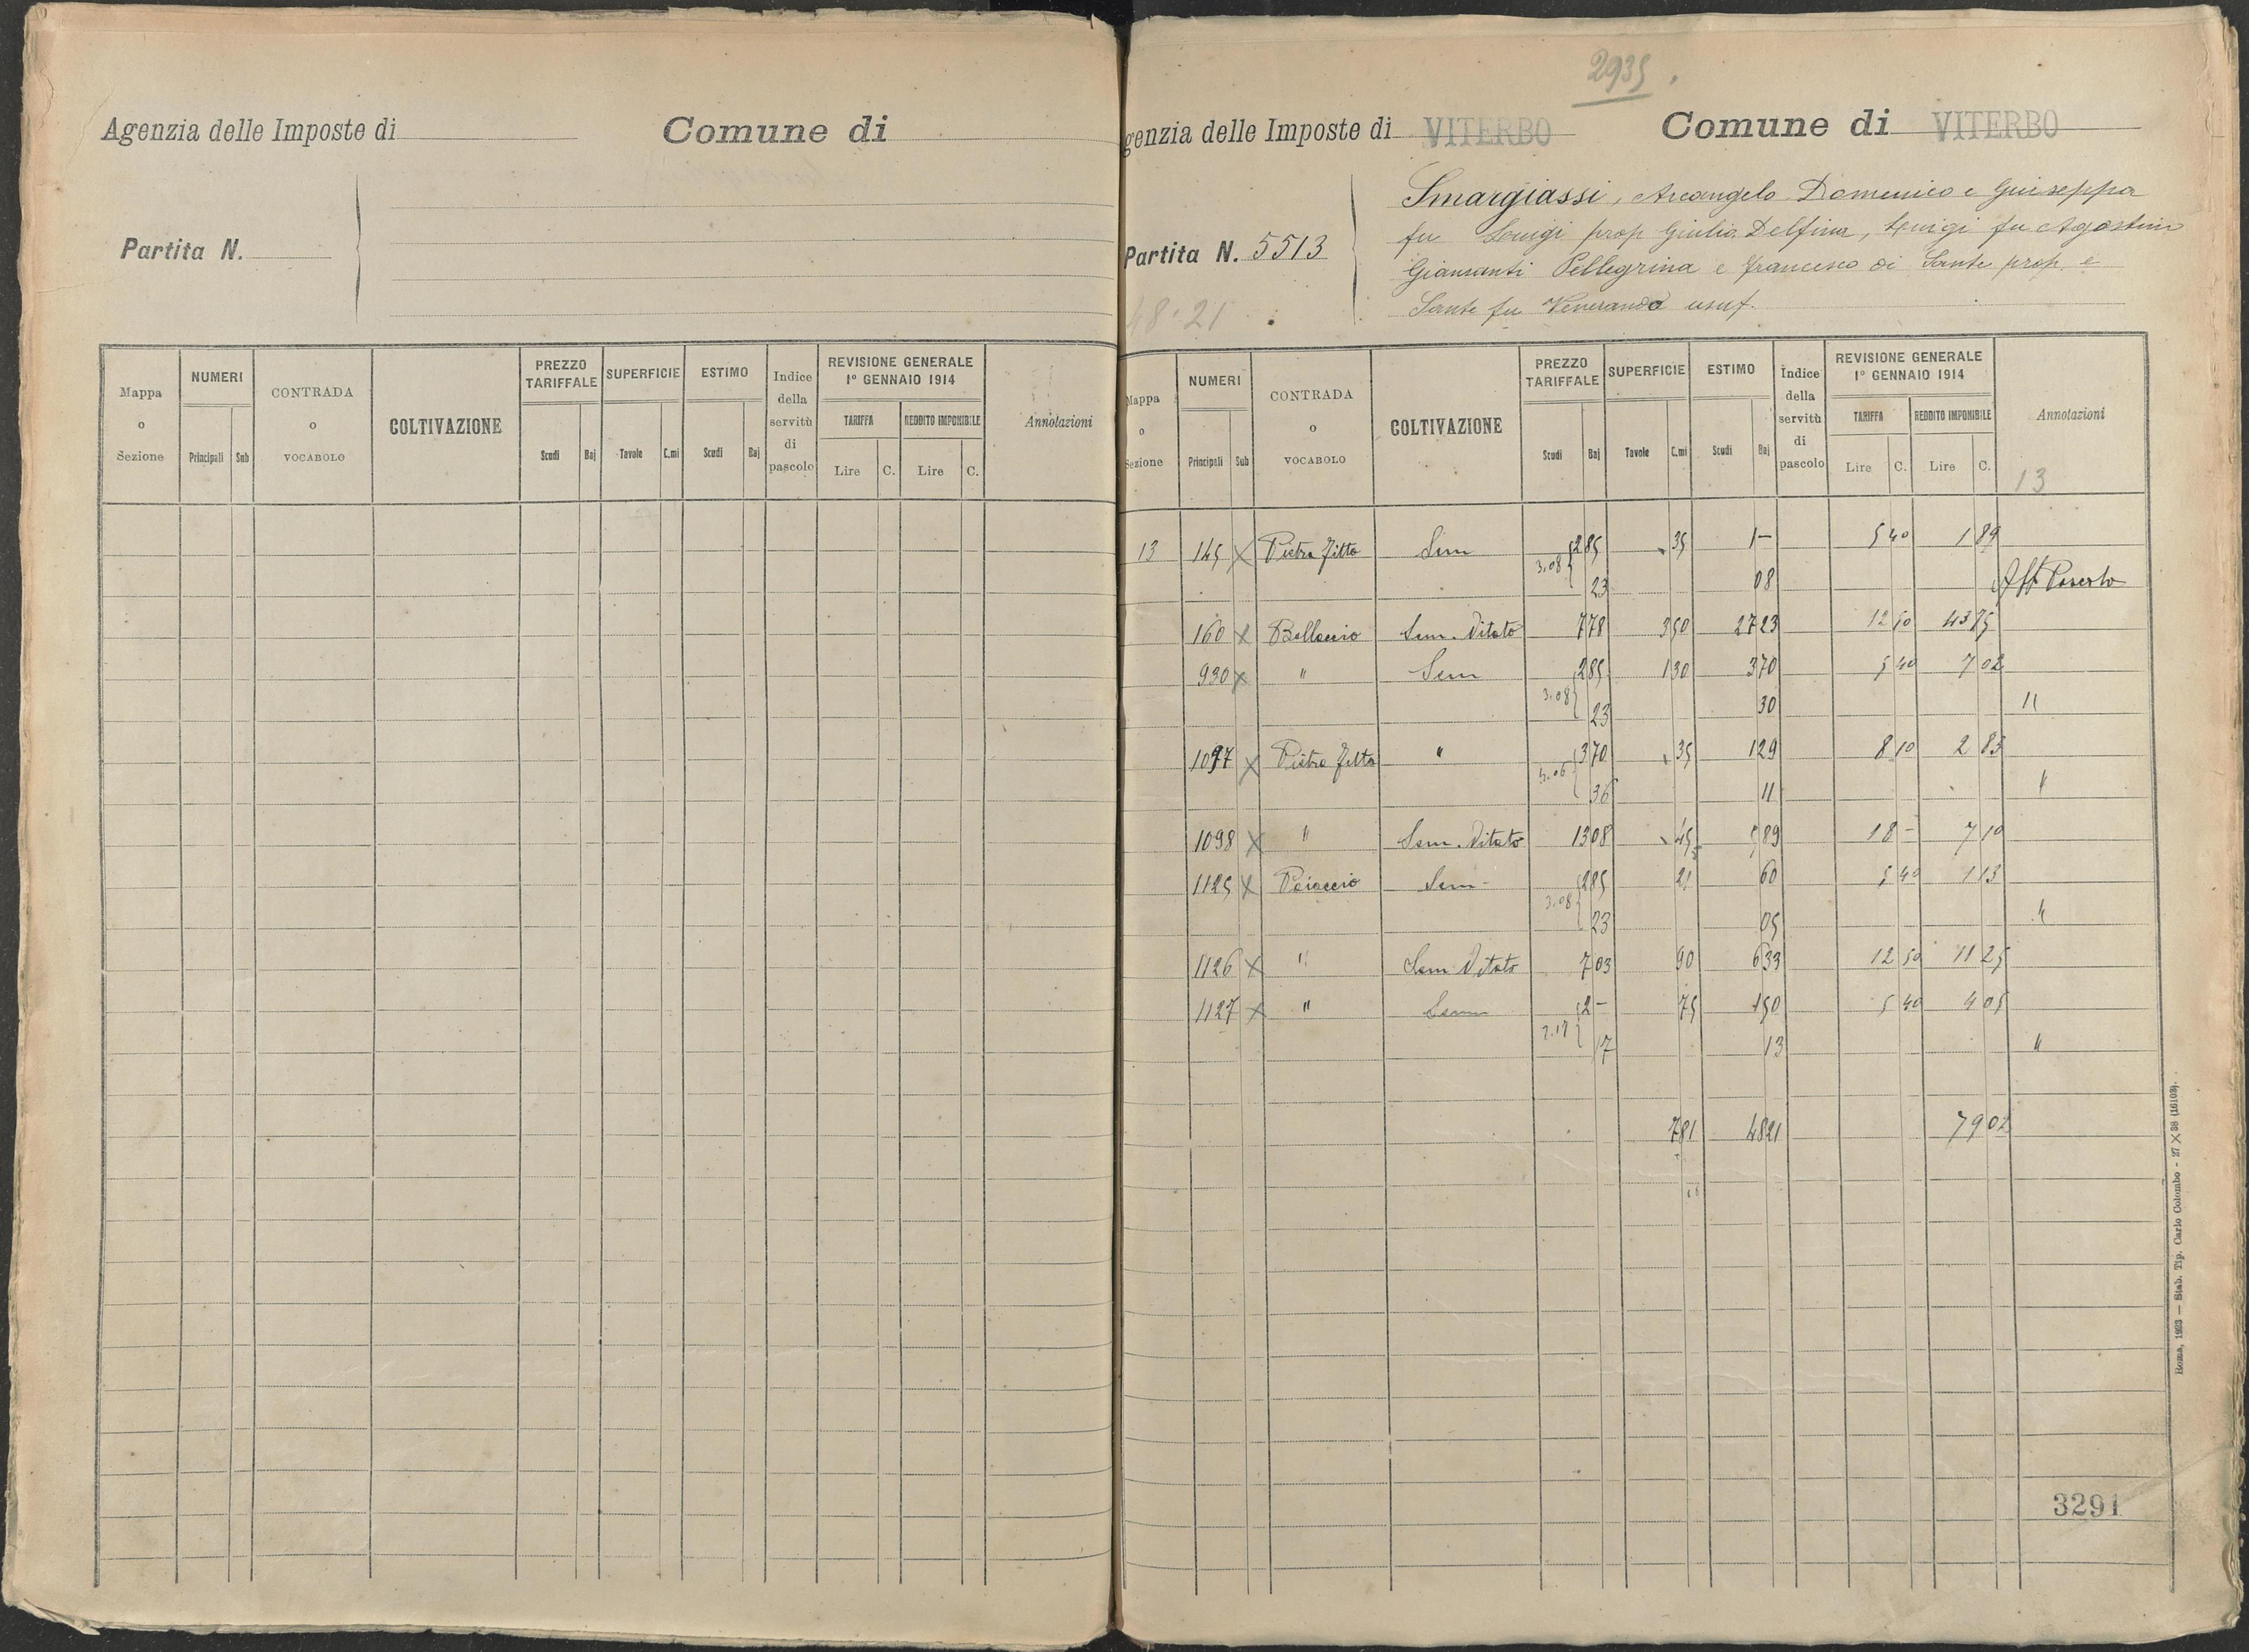 Agenzia delle Imposte di
Comune di
Partita N.
Mappa o Sezione
NUMERI
Principali
Sub
CONTRADA o VOCABOLO
COLTIVAZIONE
PREZZO TARIFFALE
Scudi
Baj
SUPERFICIE
Tavole
C.mi
ESTIMO
Scudi
Baj
Indice della servitù di pascolo
REVISIONE GENERALE
1° GENNAIO 1914
TARIFFA
REDDITO IMPONIBILE
Lire
C.
Lire
C.
Annotazioni
2935
genzia delle Imposte di VITERBO
Comune di VITERBO
Smargiassi, Arcangelo Domenico e Giuseppa
fu Luigi prop Giulia Delfina, Luigi fu Agostino
Partita N. 5513
Giansanti Pellegrina e Francesco di Sante prop. e
Sante fu Veneranda usuf.
48.21
Mappa o Sezione
NUMERI
Principali
Sub
CONTRADA o VOCABOLO
COLTIVAZIONE
PREZZO TARIFFALE
Scudi
Baj
SUPERFICIE
Tavole
C.mi
ESTIMO
Scudi
Baj
Indice della servitù di pascolo
REVISIONE GENERALE
1° GENNAIO 1914
TARIFFA
REDDITO IMPONIBILE
Lire
C.
Lire
C.
Annotazioni
13
13 145 X Pietra fitta Sem 2 85 35 1 — 5 40 1 89
3.08 23 08
160 X Sem. Vitato 7 78 3 50 27 23 12 50 43 75
930 X " Sem 2 85 1 30 3 70 5 40 7 02
3.08 23 30 "
1097 X Pietra fitta " 3 70 35 1 29 8 10 2 83
4.06 36 11 "
1098 X " Sem. Vitato 13 08 45 5 89 18 — 7 10
1125 X Sem 2 85 21 60 5 40 1 13
3.08 23 05 "
1126 X " Sem Vitato 7 03 90 6 33 12 50 11 25
1127 X " Sem 2 — 75 1 50 5 40 4 05
2.17 17 13 "
7 81 48 21 79 02
3291
Roma, 1923 — Stab. Tip. Carlo Colombo - 27 X 38 (16103).